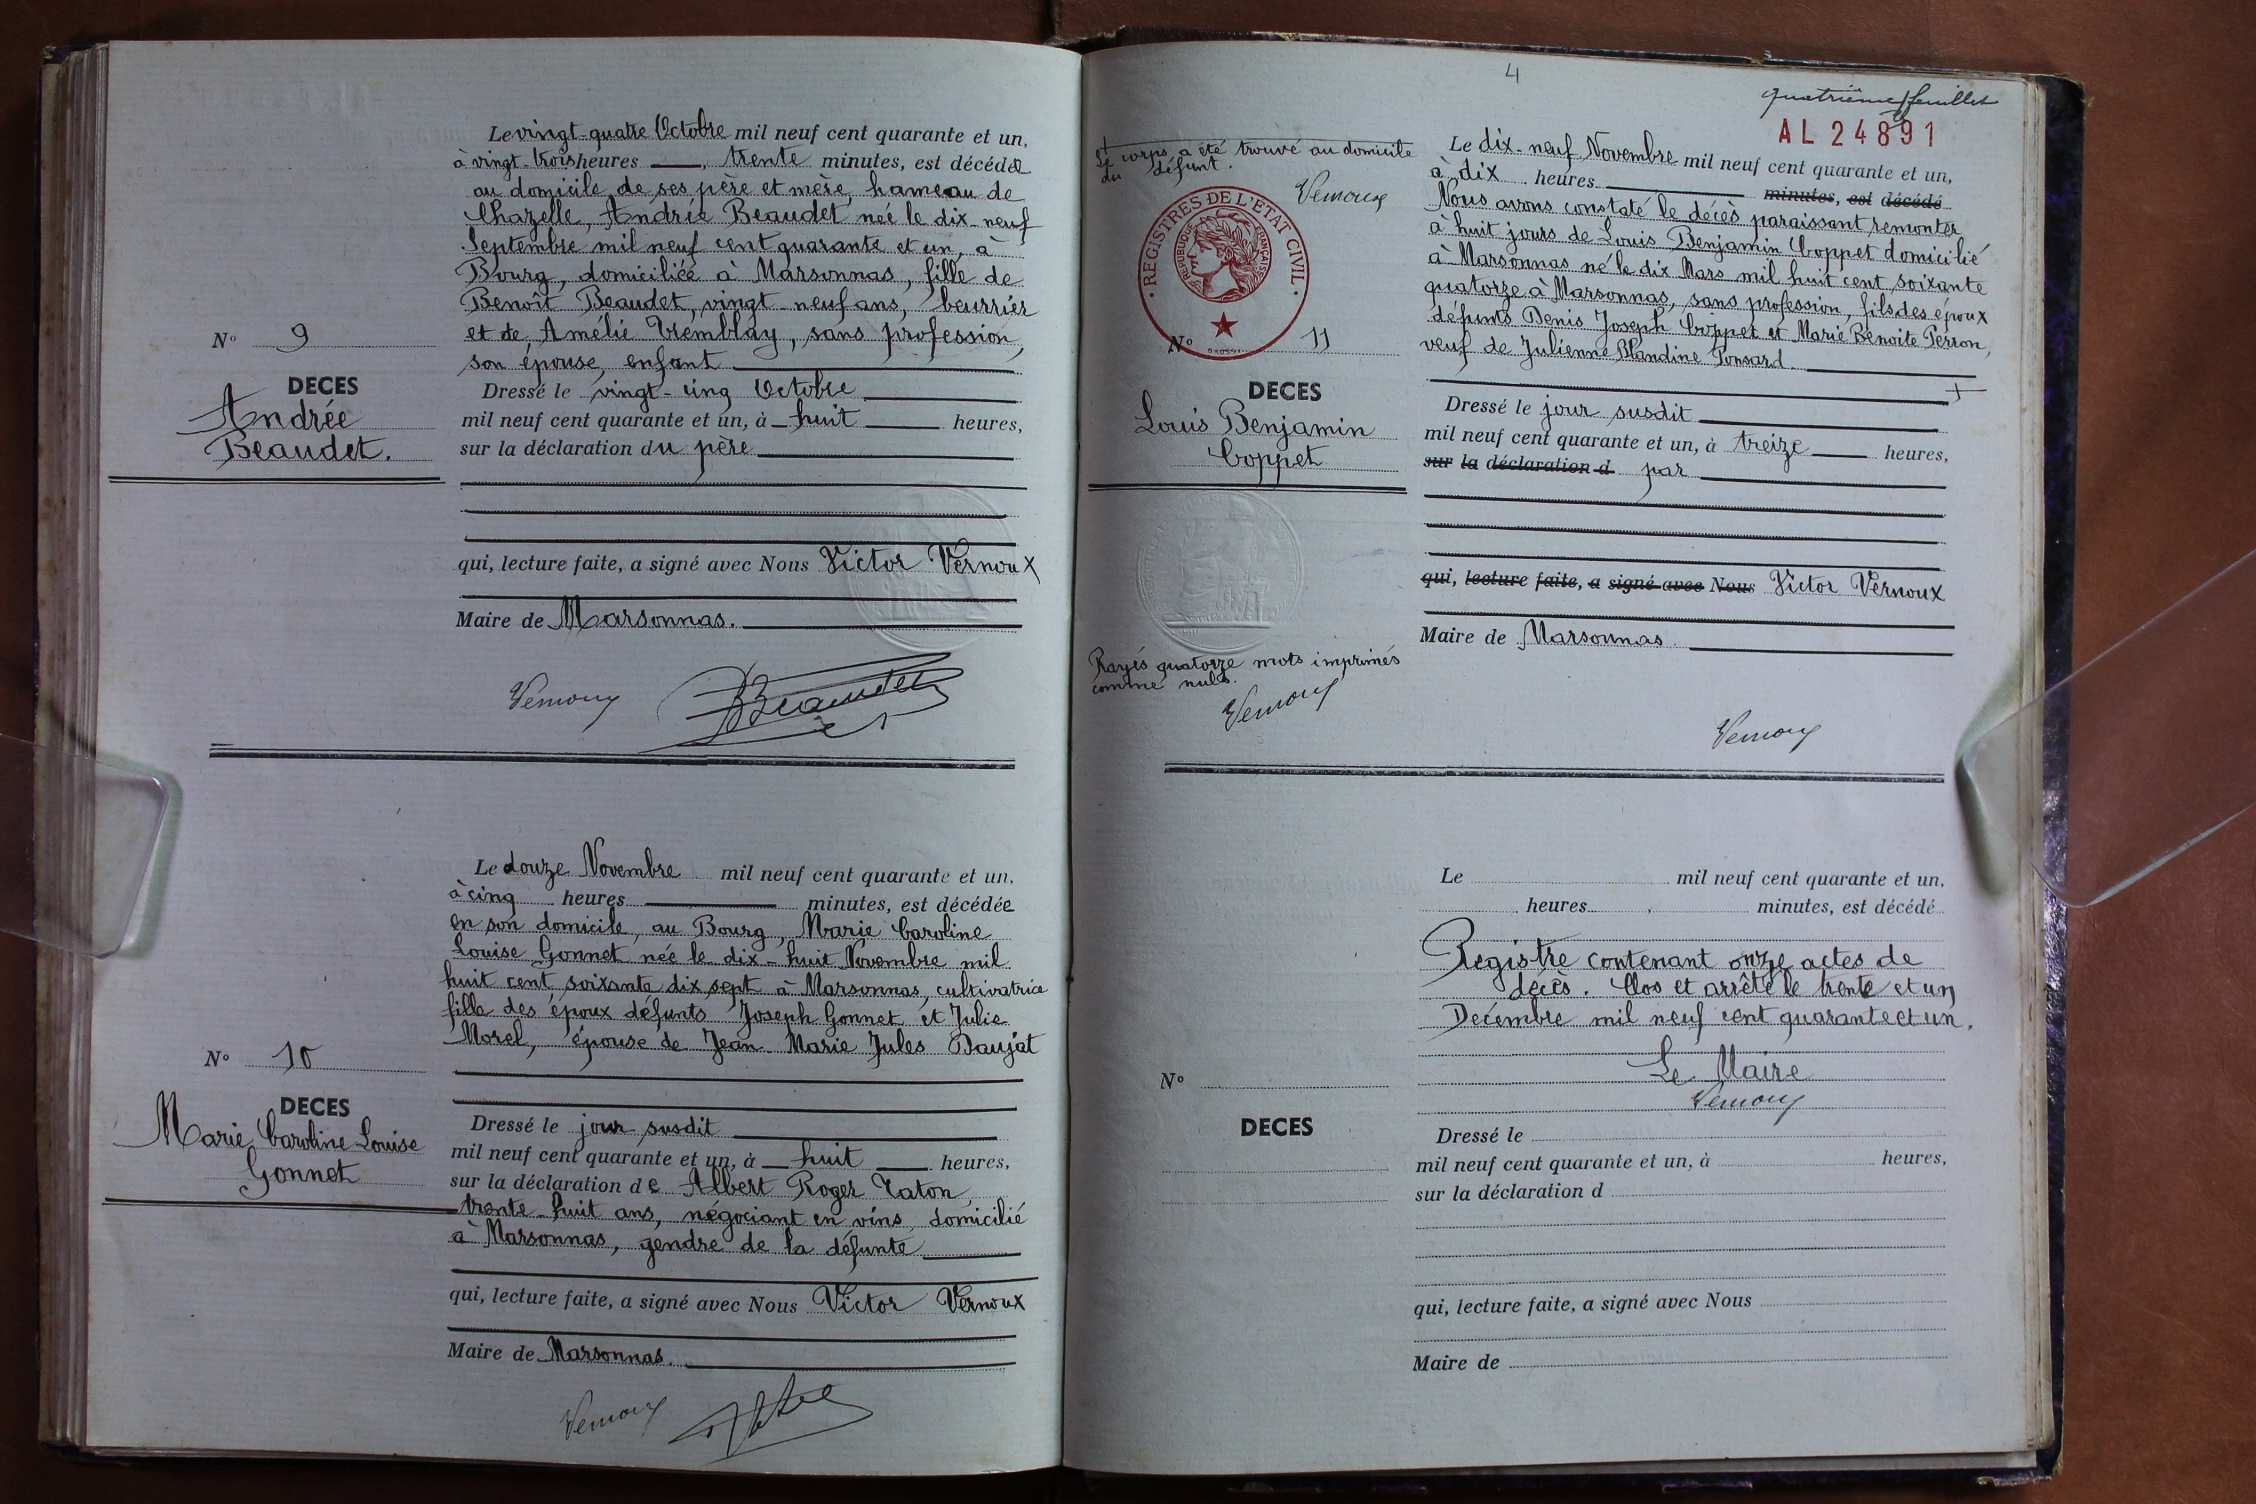 Le vingt-quatre Octobre mil neuf cent quarante et un,
à vingt-trois heures, trente minutes, est décédée
au domicile de ses père et mère, hameau de
Chazelle, Andrée Beaudet née le dix-neuf
Septembre mil neuf cent quarante et un, à
Bourg, domiciliée à Marsonnas, fille de
Benoît Beaudet, vingt-neuf ans, beurrier
et de Amélie Tremblay, sans profession,
son épouse, enfant
N° 9
DECES
Andrée
Beaudet.
Dressé le vingt-cinq Octobre
mil neuf cent quarante et un, à huit heures,
sur la déclaration du père
qui, lecture faite, a signé avec Nous Victor Vernoux
Maire de Marsonnas.
Vernoux Beaudet
Le douze Novembre mil neuf cent quarante et un,
à cinq heures minutes, est décédée
en son domicile, au Bourg, Marie Caroline
Louise Gonnet née le dix-huit Novembre mil
huit cent soixante dix sept à Marsonnas, cultivatrice
fille des époux défunts Joseph Gonnet et Julie
Morel, épouse de Jean Marie Jules Daujat
N° 10
DECES
Marie Caroline Louise
Gonnet
Dressé le jour susdit
mil neuf cent quarante et un, à huit heures,
sur la déclaration de Albert Roger Raton,
trente-huit ans, négociant en vins, domicilié
à Marsonnas, gendre de la défunte
qui, lecture faite, a signé avec Nous Victor Vernoux
Maire de Marsonnas.
Vernoux
4
quatrième feuillet
AL 24891
Le corps a été trouvé au domicile
du défunt.
Vernoux
REGISTRES DE L'ETAT CIVIL
REPUBLIQUE FRANÇAISE
Le dix-neuf Novembre mil neuf cent quarante et un,
à dix heures minutes, est décédé
Nous avons constaté le décès paraissant remonter
à huit jours de Louis Benjamin Coppet domicilié
à Marsonnas né le dix Mars mil huit cent soixante
quatorze à Marsonnas, sans profession, fils des époux
défunts Denis Joseph Coppet et Marie Benoite Perron,
veuf de Julienne Blandine Ponsard
N° 11
DECES
Louis Benjamin
Coppet
Dressé le jour susdit
mil neuf cent quarante et un, à treize heures,
sur la déclaration d par
qui, lecture faite, a signé avec Nous Victor Vernoux
Maire de Marsonnas
Rayés quatorze mots imprimés
comme nuls.
Vernoux
Vernoux
Le mil neuf cent quarante et un,
heures, minutes, est décédé
Registre contenant onze actes de
décès. Clos et arrêté le trente et un
Décembre mil neuf cent quarante et un.
Le Maire
Vernoux
N°
DECES
Dressé le
mil neuf cent quarante et un, à heures,
sur la déclaration d
qui, lecture faite, a signé avec Nous
Maire de